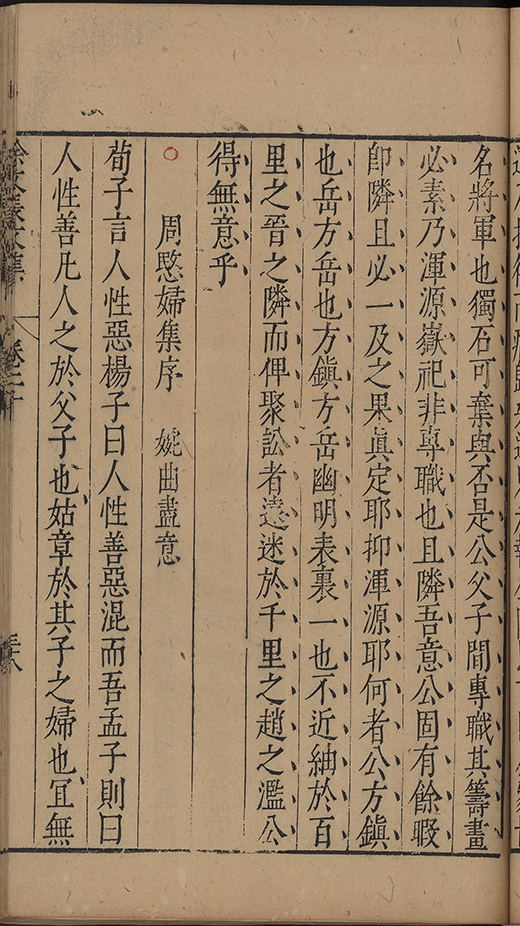 名將軍也獨石可棄與否是公父子閒專職其籌畫
必素乃渾源嶽祀非專職也且隣吾意公固有餘暇
卽隣且必一及之果眞定耶抑渾源耶何者公方鎭
也岳方岳也方鎭方岳幽明表裏一也不近紬於百
里之晉之隣而俾聚訟者遠迷於千里之趙之濫公
得無意乎
周愍婦集序 婉曲盡意
荀子言人性惡楊子曰人性善惡混而吾孟子則曰
人性善凡人之於父子也姑章於其子之婦也宜無
卷二十
三八